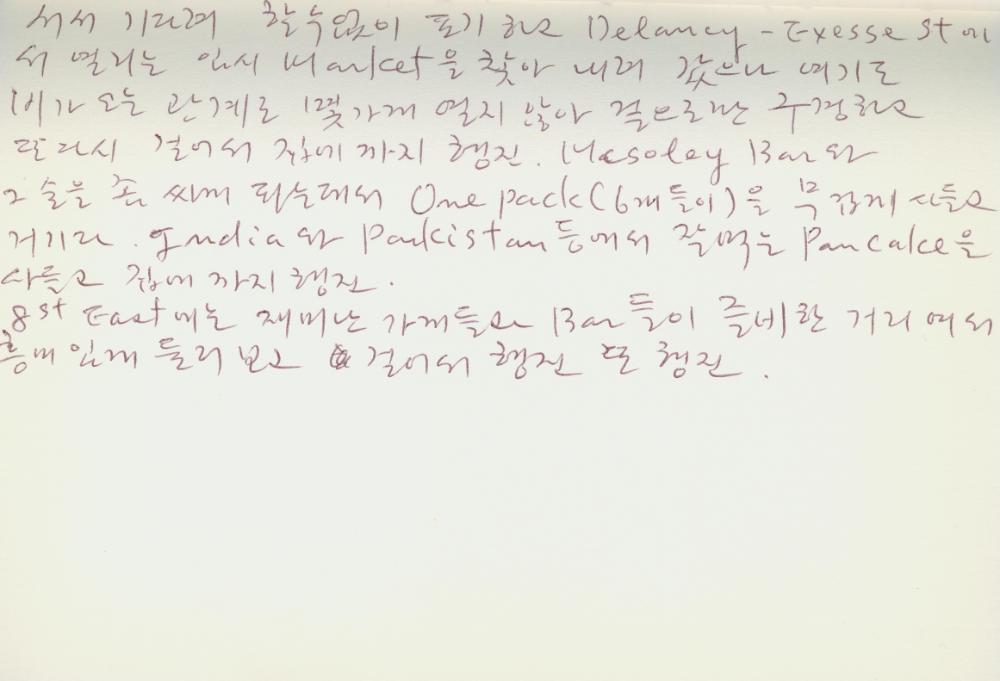 서서 기다려 할수없이 포기하고 Delancy - Exesse St에
서 열리는 임시 Market을 찾아 내려 갔으나 여기도
비가 오는 관계로 몇가게 열지 않아 겉으로만 구경하고
또다시 걸어서 집에 까지 행진. Mcsoley Bar와
그 술을 좀 싸게 파는데서 One pack(6개들이)을 무겁게 사들고
거기다. India와 Parkistan 등에서 잘먹는 Pancake을
사들고 집에 까지 행진.
8st East에는 재미난 가게들과 Bar들이 즐비한 거리여서
흥미있게 둘러보고 걸어서 행진 또 행진.